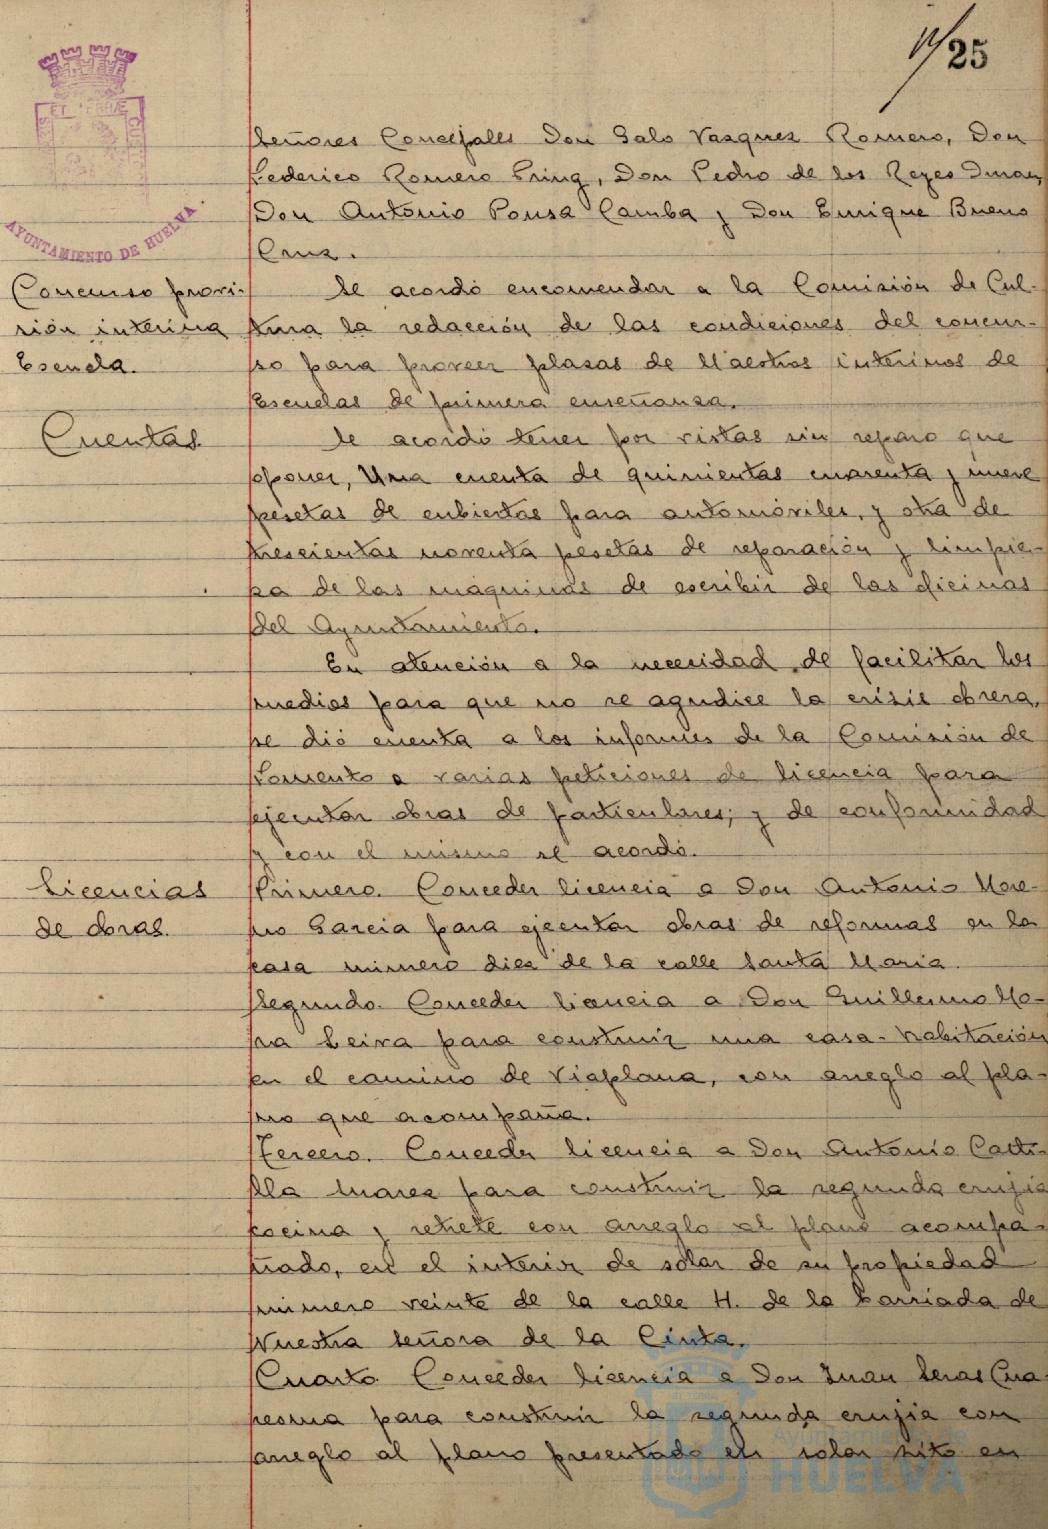 25
AYUNTAMIENTO DE HUELVA
Señores Concejalls Don Galo Vasquez Romero, Don
Federico Romero Pring, Don Pedro de los Reyes Duran,
Don Antonio Pousa Camba y Don Enrique Bueno
Cruz.
Concurso provi-
sión interina
Escuela.
Se acordó encomendar a la Comisión de Cul-
tura la redacción de las condiciones del concur-
so para proveer plazas de Maestros interinos de
Escuelas de primera enseñanza.
Cuentas.
Se acordó tener por vistas sin reparo que
oponer, Una cuenta de quinientas cuarenta y nueve
pesetas de cubiertas para automóviles, y otra de
trescientas noventa pesetas de reparación y limpie-
za de las máquinas de escribir de las oficinas
del Ayuntamiento.
En atención a la necesidad de facilitar los
medios para que no se agudice la crisis obrera,
se dió cuenta a los informes de la Comisión de
Fomento a varias peticiones de licencia para
ejecutar obras de particulares; y de conformidad
y con el mismo se acordó.
Licencias
de obras.
Primero. Conceder licencia a Don Antonio More-
no Garcia para ejecutar obras de reformas en la
casa número diez de la calle Santa Maria.
Segundo. Conceder licencia a Don Guillermo Mo-
ra Leiva para construir una casa-habitación
en el camino de Viaplana, con areglo al pla-
no que acompaña.
Tercero. Conceder licencia a Don Antonio
para construir la segunda crujia
cocina y retrete con areglo al plano acompa-
ñado, en el interior de solar de su propiedad
número veinte de la calle H. de la Barriada de
Nuestra Señora de la Cinta.
Cuarto. Conceder licencia a Don Juan Seras Cua-
resma para construir la segunda crujia con
areglo al plano presentado en solar sito en
Ayuntamiento de
HUELVA